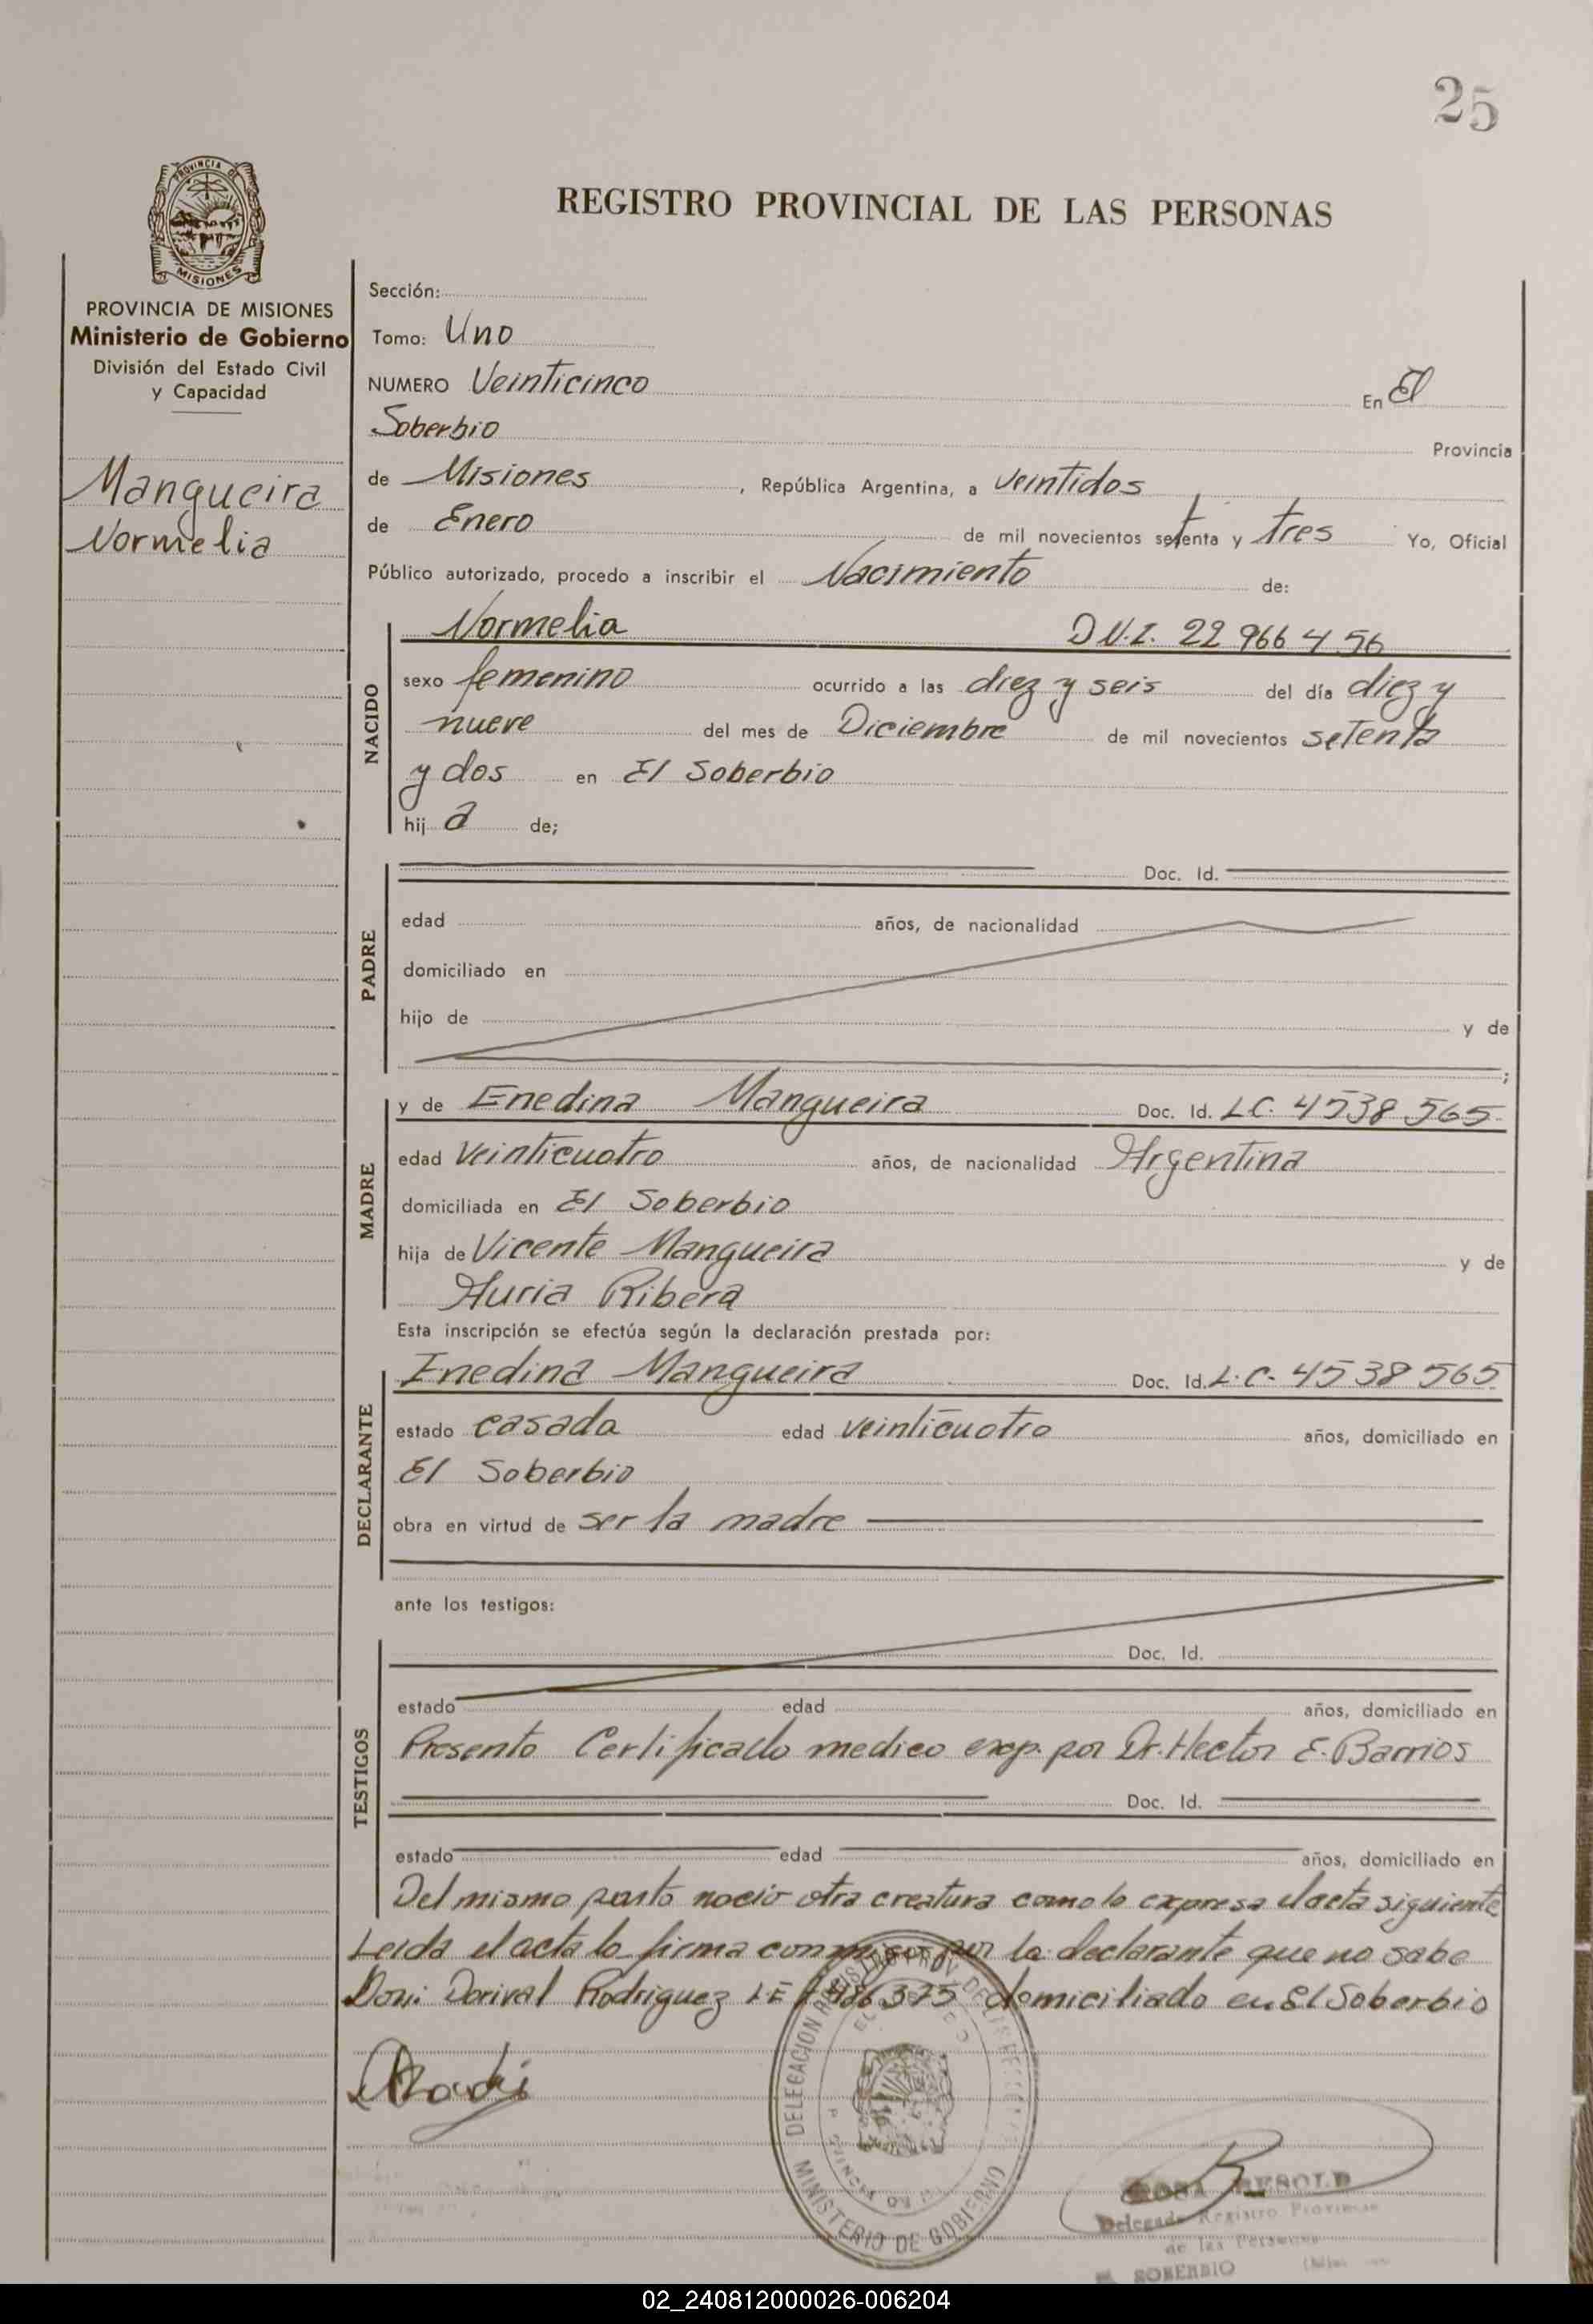 25
PROVINCIA DE
MISIONES
REGISTRO PROVINCIAL DE LAS PERSONAS
PROVINCIA DE MISIONES
Ministerio de Gobierno
División del Estado Civil
y Capacidad
Mangueira
Normelia
Sección:
Tomo: Uno
NUMERO Veinticinco En El
Soberbio Provincia
de Misiones, República Argentina, a veintidos
de Enero de mil novecientos setenta y tres Yo, Oficial
Público autorizado, procedo a inscribir el Nacimiento de:
NACIDO
Normelia D.N.I. 22 966 456
sexo femenino ocurrido a las diez y seis del día diez y
nueve del mes de Diciembre de mil novecientos setenta
y dos en El Soberbio
hij a de;
PADRE
Doc. Id.
edad años, de nacionalidad
domiciliado en
hijo de y de
;
MADRE
y de Enedina Mangueira Doc. Id. LC. 4538565
edad veinticuatro años, de nacionalidad Argentina
domiciliada en El Soberbio
hija de Vicente Mangueira y de
Auria Ribera
Esta inscripción se efectúa según la declaración prestada por:
DECLARANTE
Enedina Mangueira Doc. Id. L.C. 4538565
estado casada edad veinticuatro años, domiciliado en
El Soberbio
obra en virtud de ser la madre
ante los testigos:
TESTIGOS
Doc. Id.
estado edad años, domiciliado en
Presento Certificado medico exp. por Dr. Hector E. Barrios
Doc. Id.
estado edad años, domiciliado en
Del mismo parto nació otra creatura como lo expresa el acta siguiente
Leida el acta la firma conmigo por la declarante que no sabe
Don: Dorival Rodriguez LE 375 domiciliado en El Soberbio
DELEGACION REGISTRO PROV. DE LAS PERSONAS
MINISTERIO DE GOBIERNO
Delegada Registro Provincial
de las Personas
SOBERBIO
02_240812000026-006204